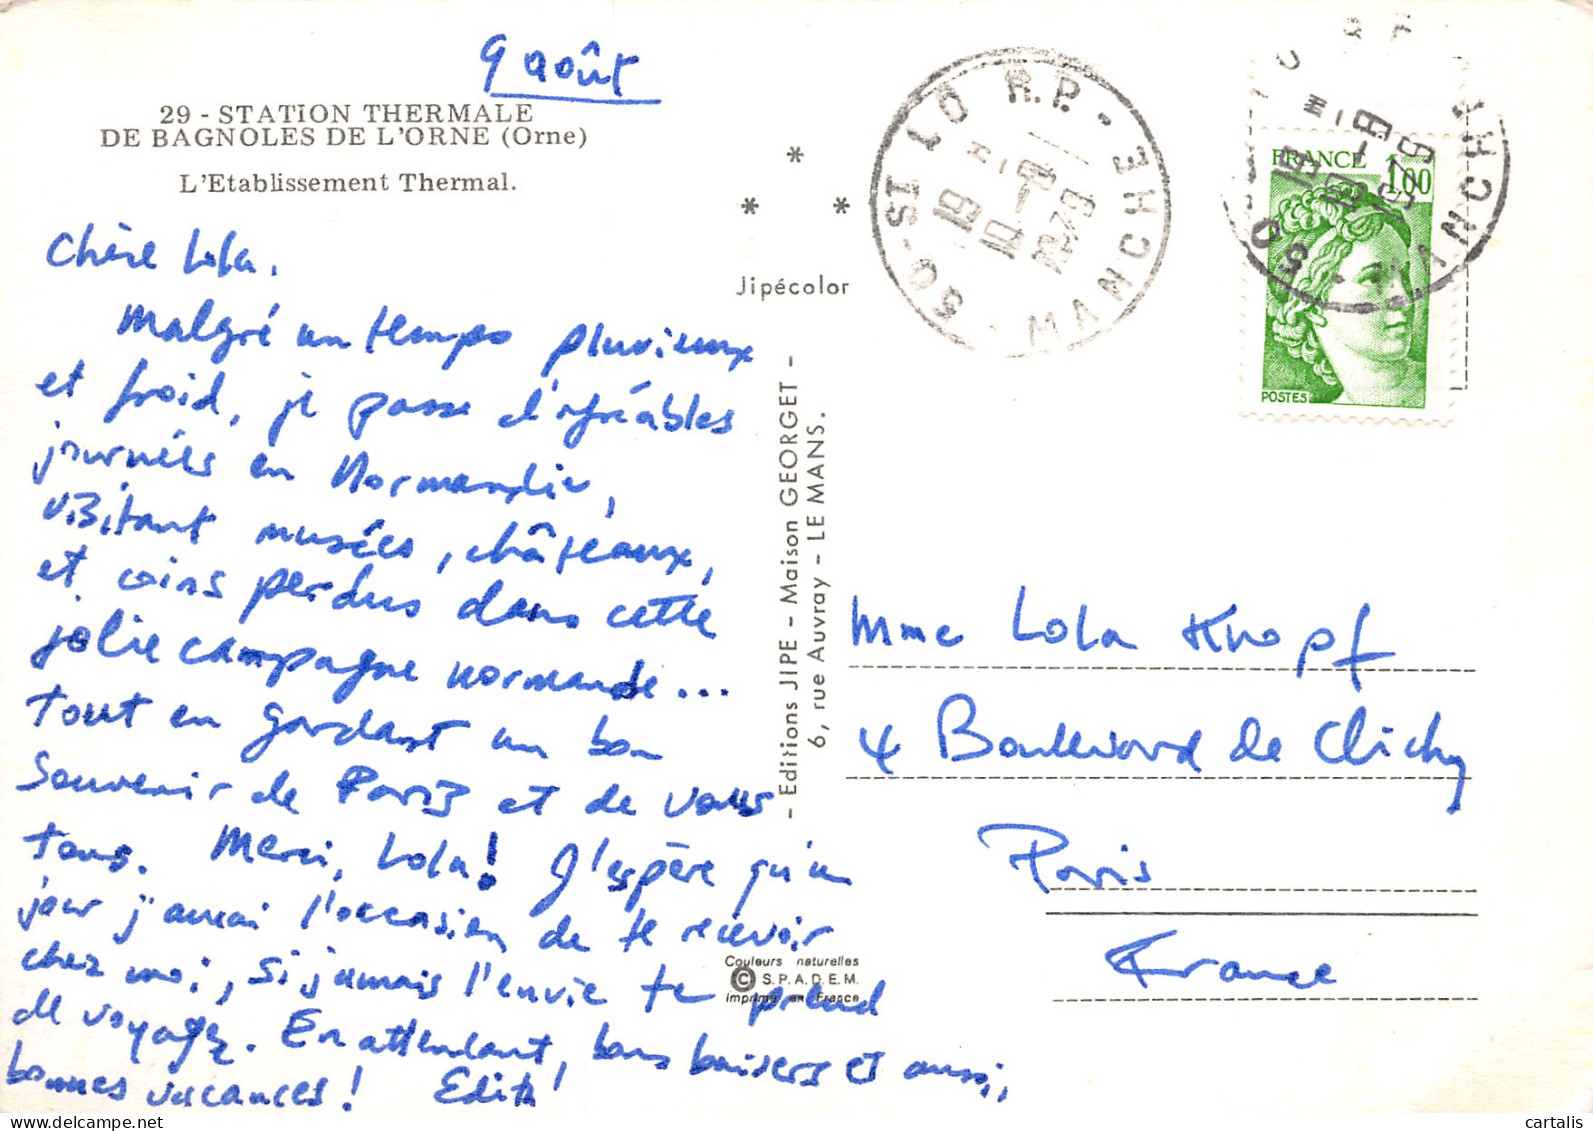 9 août
29 - STATION THERMALE
DE BAGNOLES DE L'ORNE (Orne)
L'Etablissement Thermal.
Chère Lola,
Malgré un temps pluvieux
et froid, je passe d'agréables
journées en Normandie,
visitant musées, châteaux,
et coins perdus dans cette
jolie campagne normande...
tout en gardant un bon
souvenir de Paris et de vous
tous. Merci, Lola! J'espère qu'un
jour j'aurai l'occasion de te recevoir
chez moi, si jamais l'envie te prend
de voyager. En attendant, bons baisers et aussi,
bonnes vacances! Edith
* * *
Jipécolor
- Editions JIPE - Maison GEORGET -
6, rue Auvray - LE MANS.
Couleurs naturelles
© S.P.A.D.E.M.
Imprimé en France
50 - ST LO R.P. - MANCHE
1979
FRANCE 1,00
POSTES
50 - MANCHE
Mme Lola Knopf
4 Boulevard de Clichy
Paris
France
cartalis